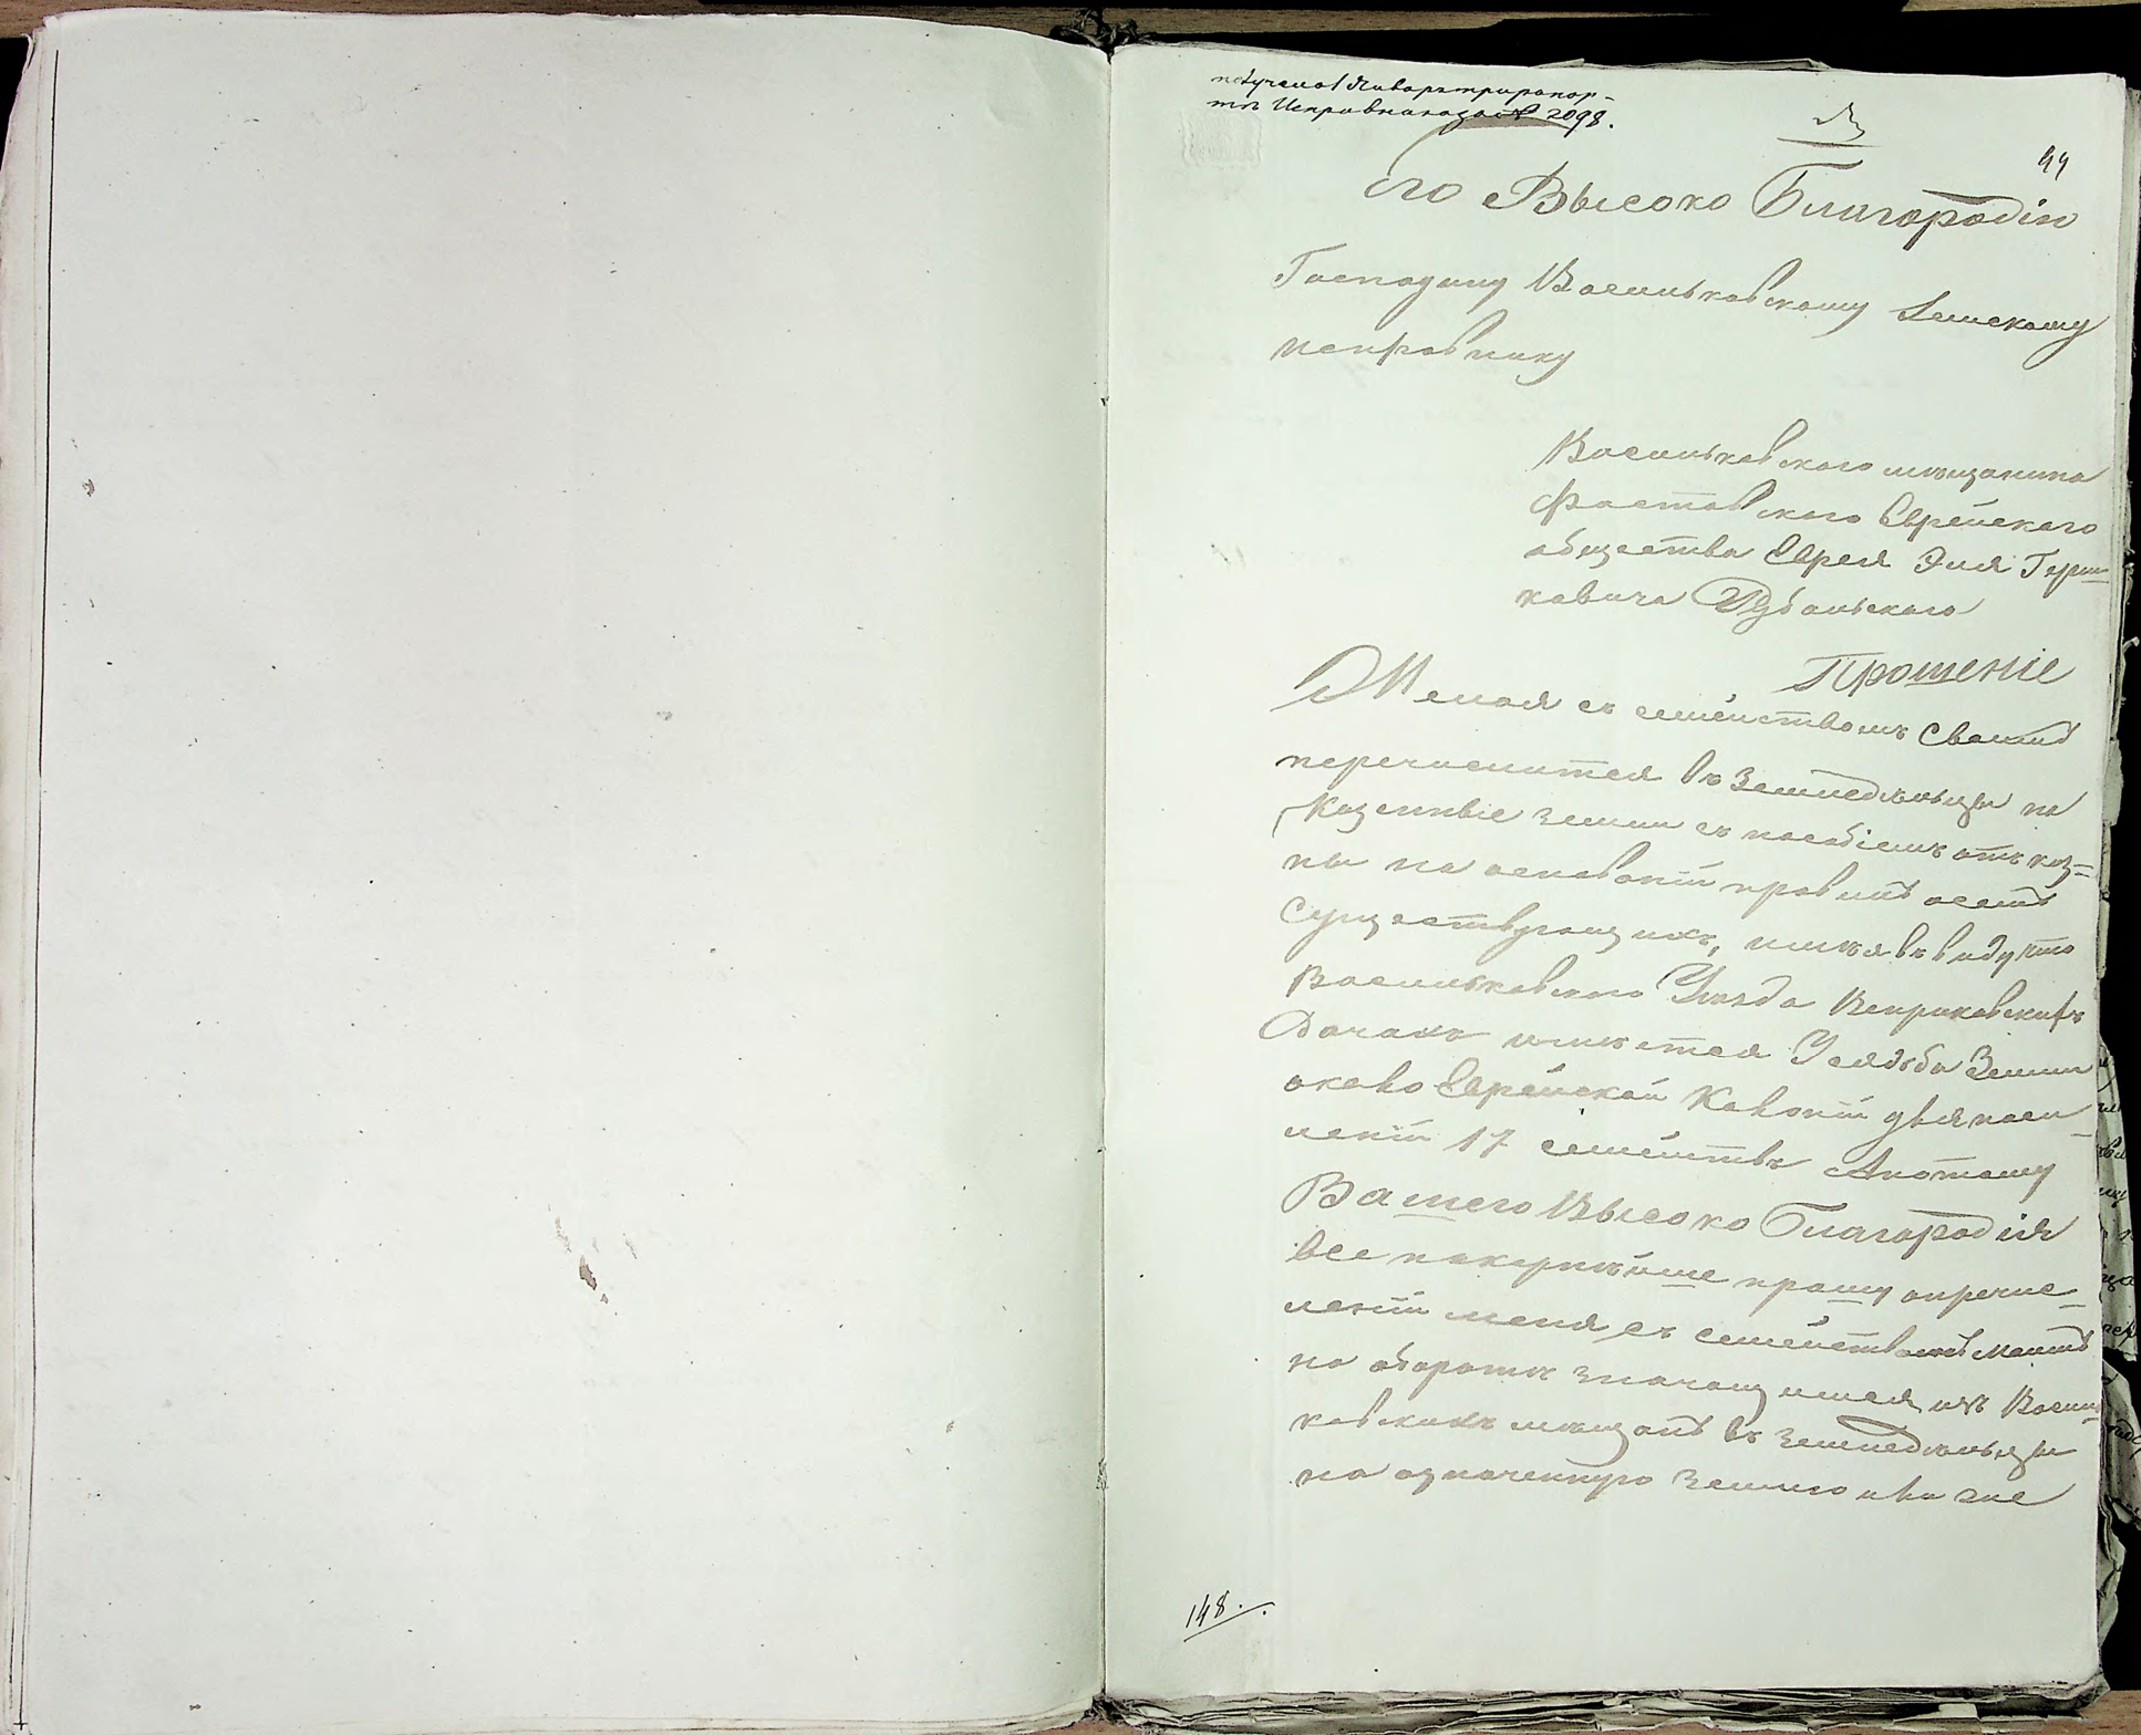 получено 1 Января при рапор-
тѣ Исправника за № 2098.
44
Его Высоко Благородію
Господину Васильковскому Земскому
исправнику
Васильковского мѣщанина
Фастовского Еврейского
общества Еврея Эля Герш-
ковича Дубов­ского
Прошеніе
Желая съ семействомъ Своимъ
перечислится въ Земледѣльцы на
Казенные земли съ пособіемъ отъ каз=
ны на основаніи правилъ
Существующихъ, имѣя въ виду что
Васильковского Уѣзда Веприковскихъ
Дачахъ имѣется Усадьба Земли
около Еврейской Колоніи для посе-
леніи 17 семействъ Апотому
Вашего Высоко Благородія
все покорнѣйше прошу опречис-
леніи меня съ семействомъ Моимъ
на оборотѣ значащимся изъ Василь-
ковскихъ мѣщанъ въ земледѣльцы
на означенную землю
148.